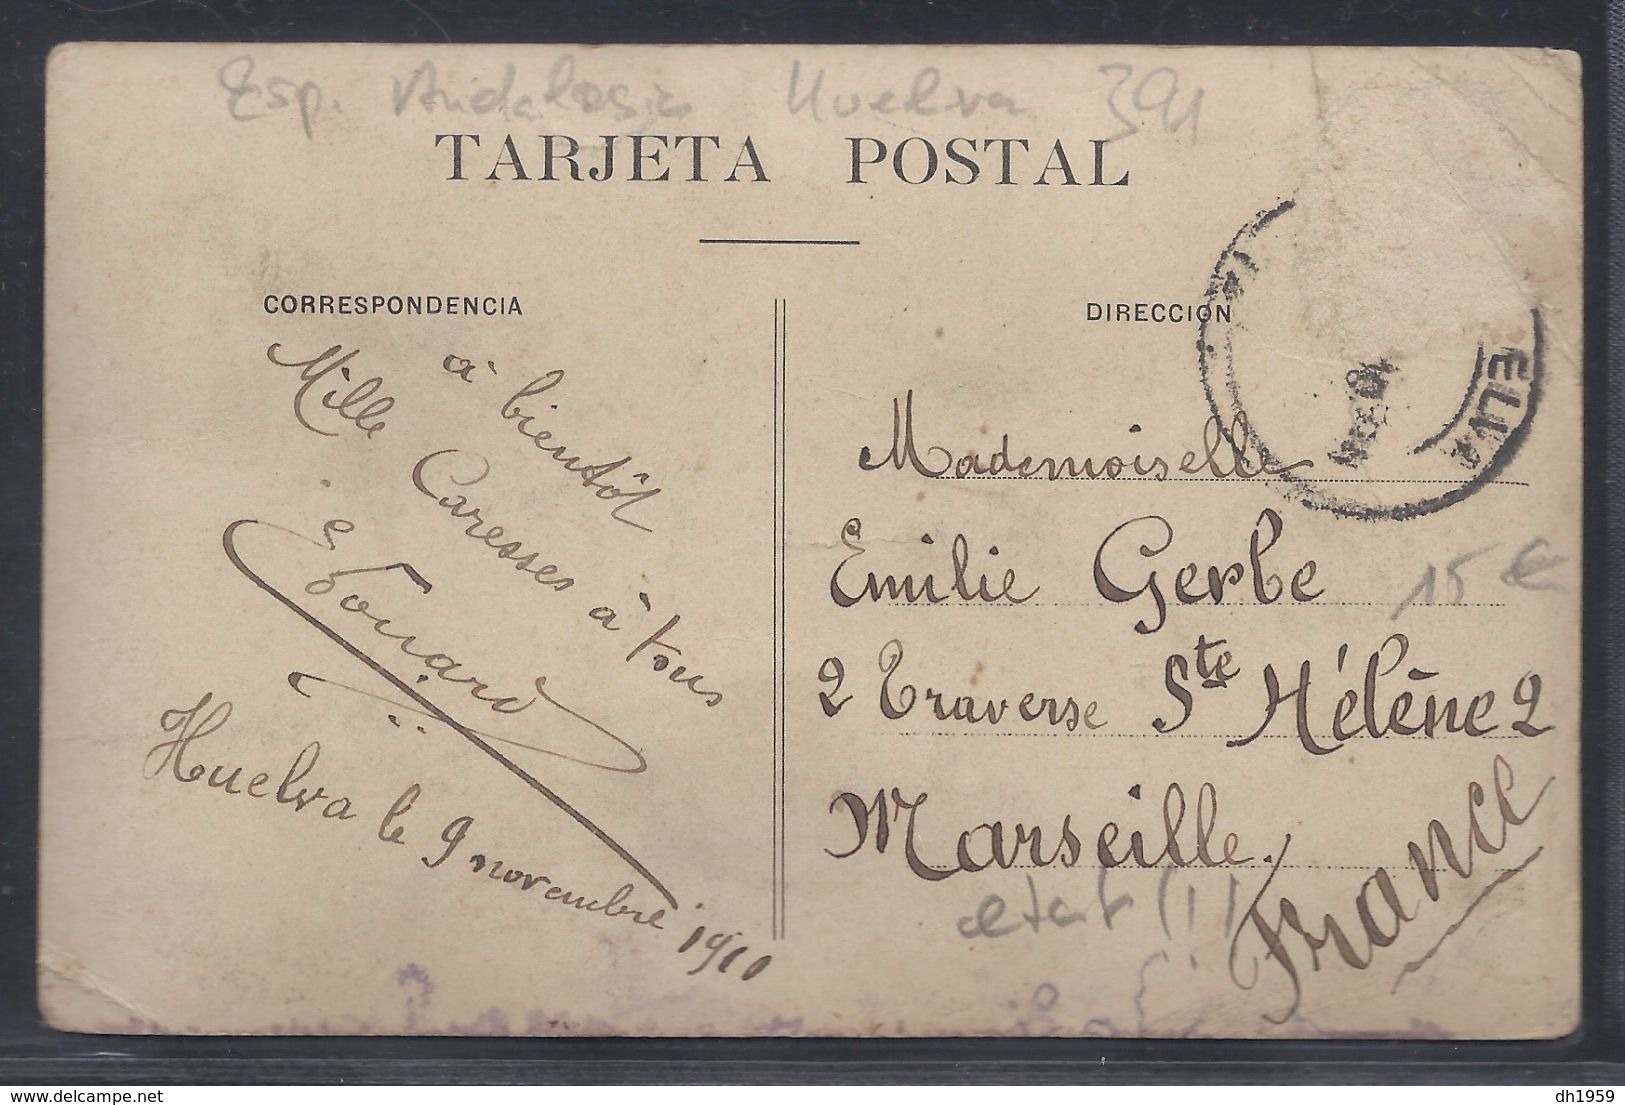 Esp. Andalosia Huelva 391
TARJETA POSTAL
CORRESPONDENCIA
à bientôt
Mille Caresses à tous
Edouard
Huelva le 9 novembre 1910
DIRECCIÓN
ELVA
Mademoiselle
Emilie Gerbe
15 €
2 Traverse Ste Hélène 2
Marseille.
France
etat (!)
delcampe.net
dh1959